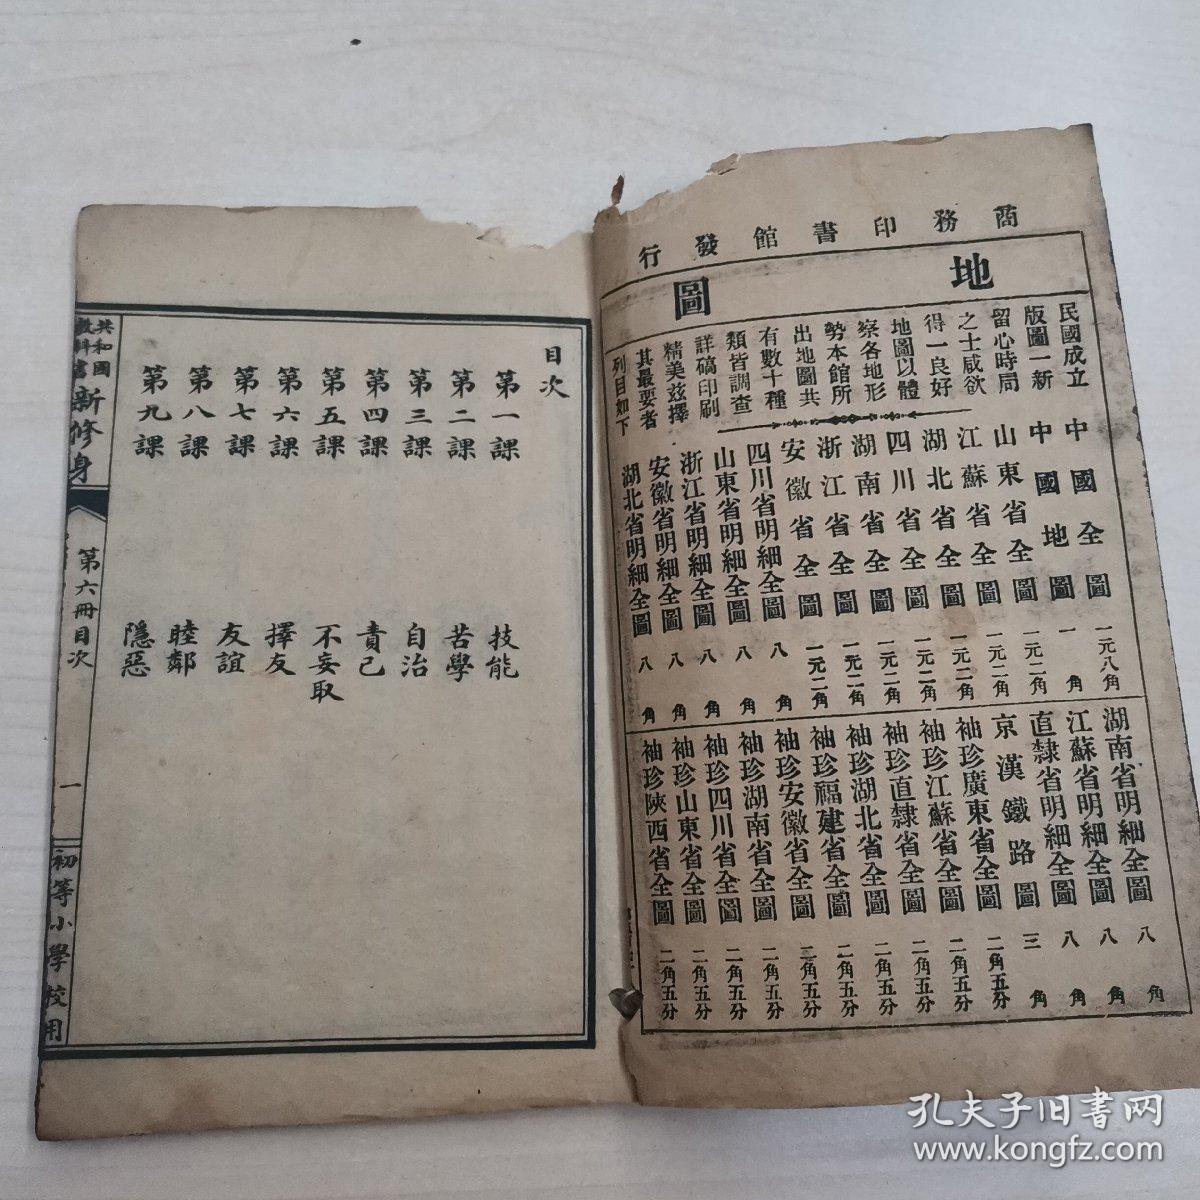 商務印書館發行
地圖
民國成立
版圖一新
留心時局
之士咸欲
得一良好
地圖以體
察各地形
勢本館所
出地圖共
有數十種
類皆調查
詳確印刷
精美茲擇
其最要者
列目如下
中國全圖 一元八角
中國地圖 一角
山東省全圖 一元二角
江蘇省全圖 一元二角
湖北省全圖 一元二角
四川省全圖 一元二角
湖南省全圖 一元二角
浙江省全圖 一元二角
安徽省全圖 一元二角
四川省明細全圖 八角
山東省明細全圖 八角
浙江省明細全圖 八角
安徽省明細全圖 八角
湖北省明細全圖 八角
湖南省明細全圖 八角
江蘇省明細全圖 八角
直隸省明細全圖 八角
京漢鐵路圖 三角
袖珍廣東省全圖 二角五分
袖珍江蘇省全圖 二角五分
袖珍直隸省全圖 二角五分
袖珍湖北省全圖 二角五分
袖珍福建省全圖 二角五分
袖珍安徽省全圖 二角五分
袖珍湖南省全圖 二角五分
袖珍四川省全圖 二角五分
袖珍山東省全圖 二角五分
袖珍陝西省全圖 二角五分
目次
第一課 技能
第二課 苦學
第三課 自治
第四課 責己
第五課 不妄取
第六課 擇友
第七課 友誼
第八課 睦鄰
第九課 隱惡
共和國教科書新修身
第六冊目次
一
初等小學校用
孔夫子旧书网
www.kongfz.com